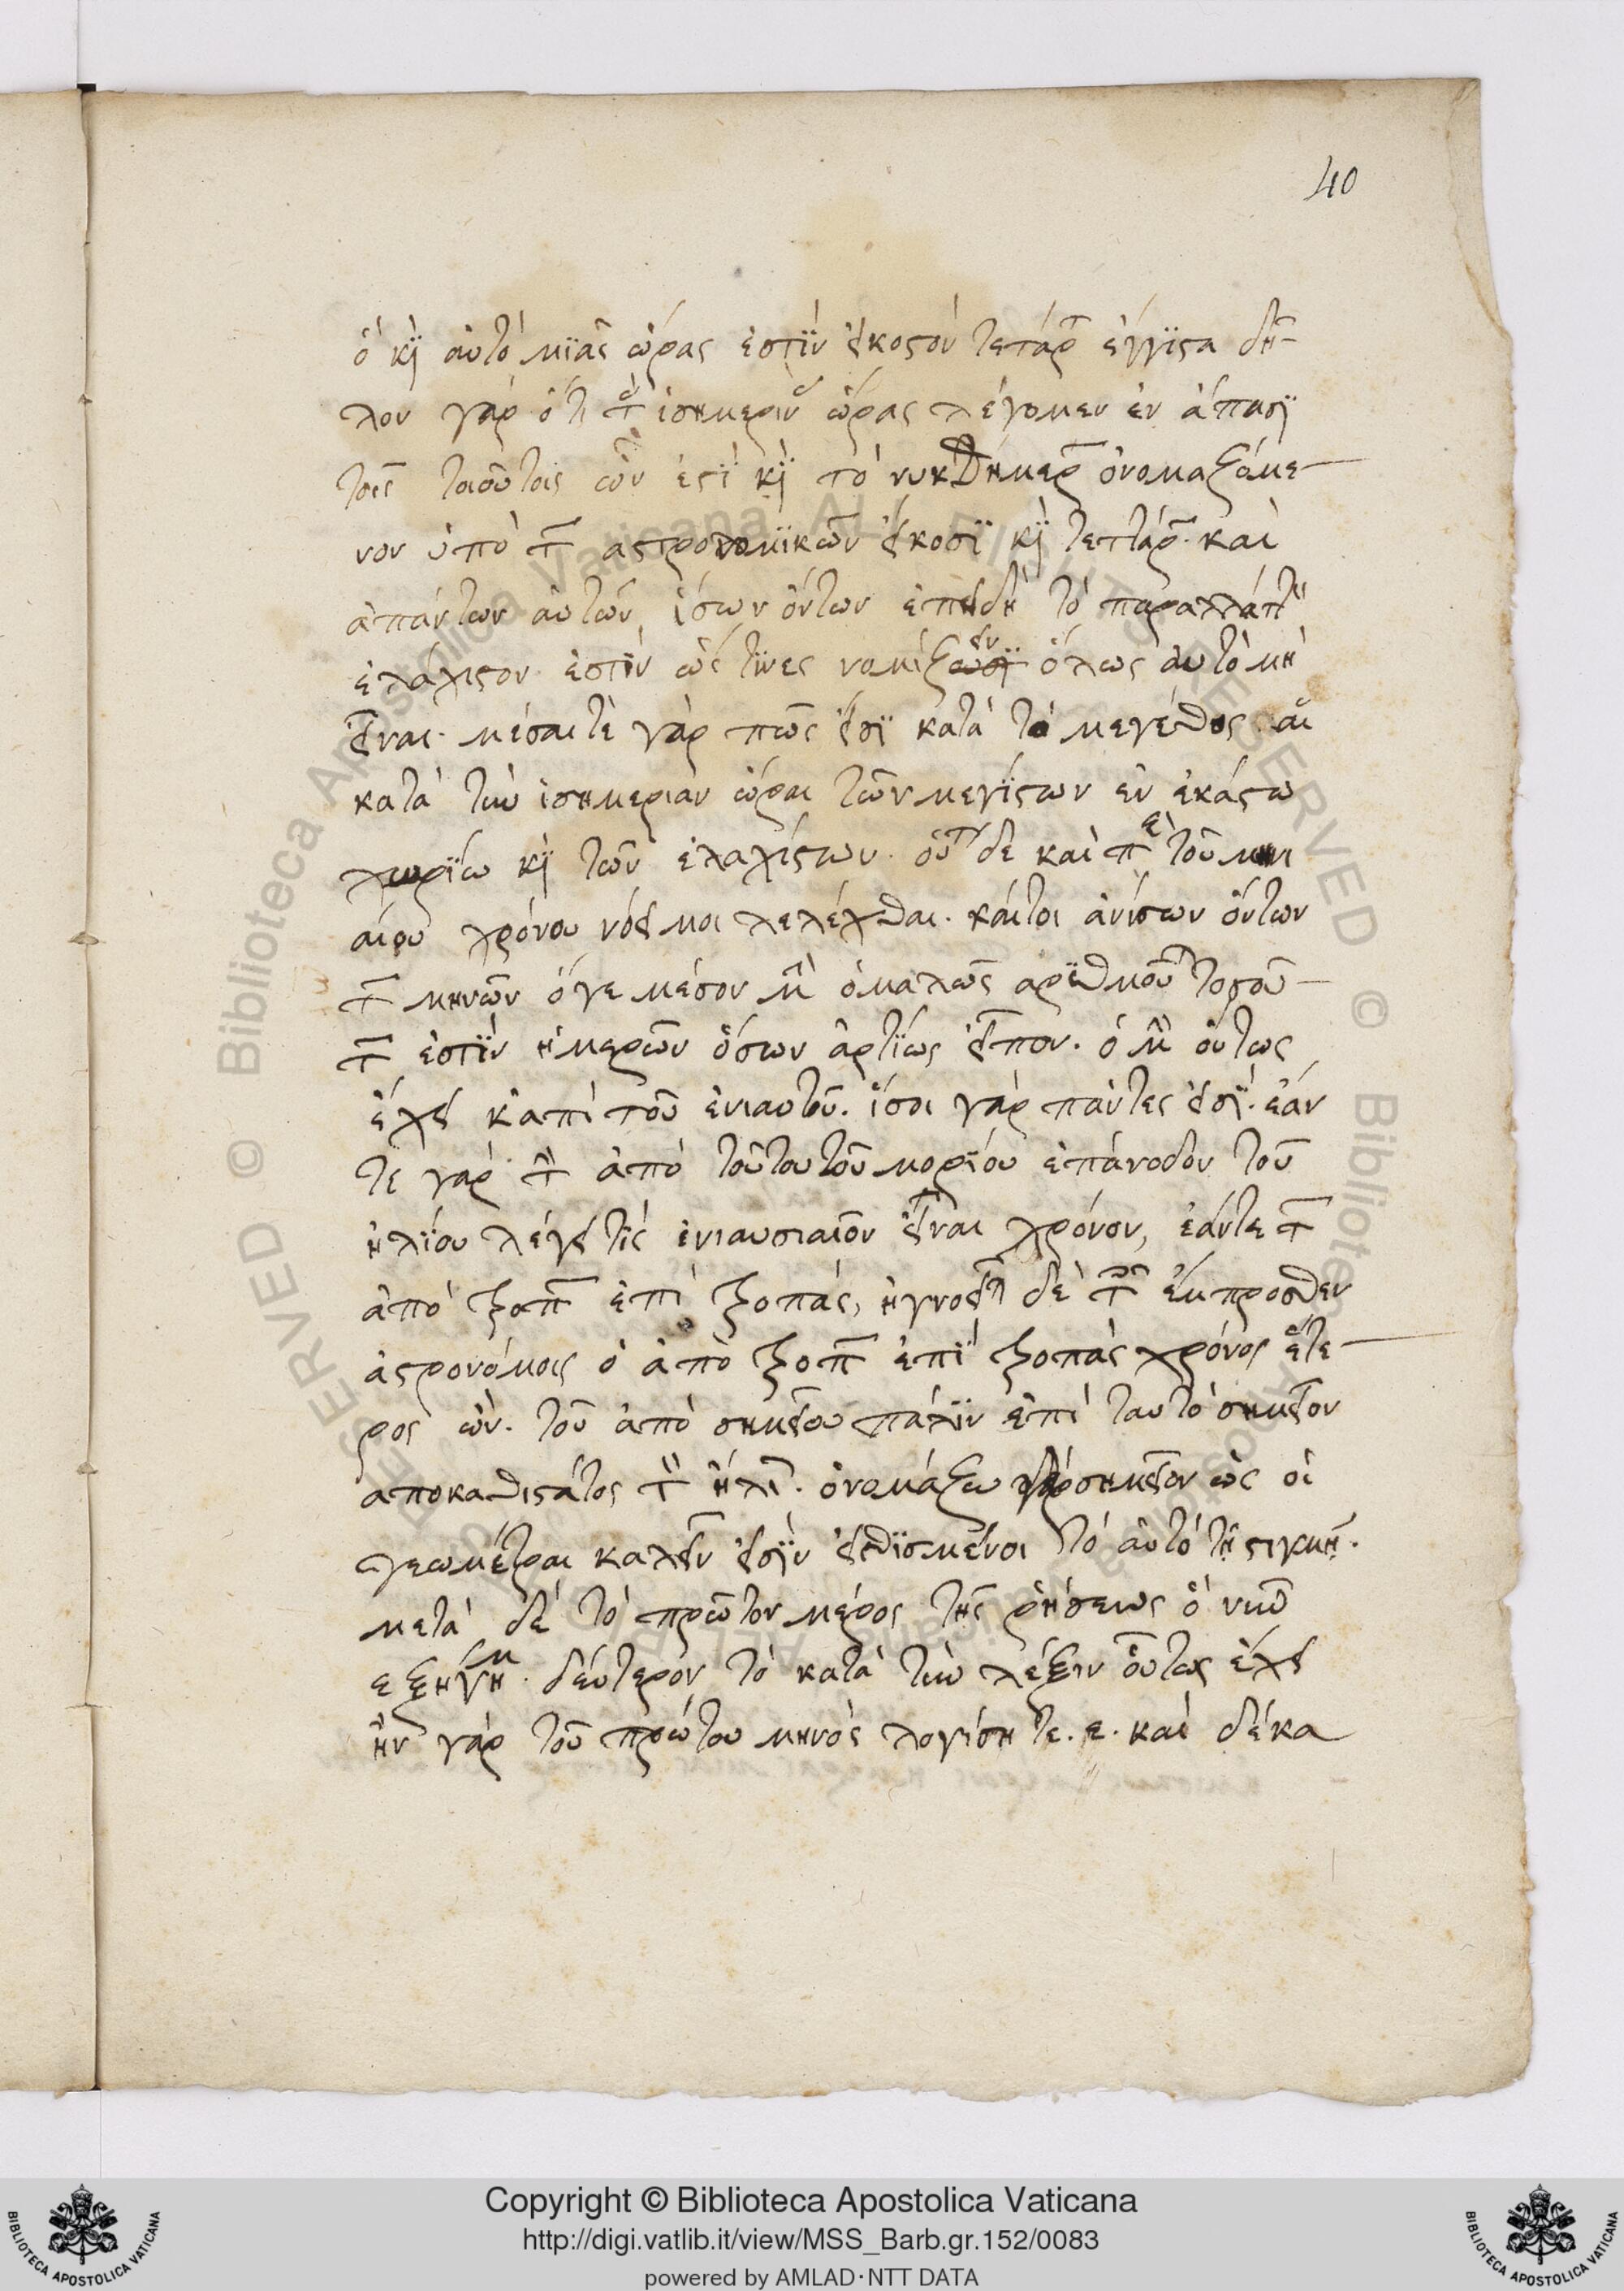 40
ὅ κὶ αὐτὸ μϊᾶς ὥρας ἐστϊν εἰκοστὸν τεταρ̅ ἔγγϊστα δῆ-
λον γὰρ ὅτι τ̅ ἰσημερινὰς ὥρας λέγομεν ἐν ἅπασϊ
τοῖς τοιούτοις ὧν ἐστϊ κὶ τὸ νυκθήμερ̅ ὀνομαζόμε-
νον ὑπὸ τ̅ αστρονομϊκῶν εἴκοσϊ κὶ τεττάρ̅. και
ἁπάντων αὐτῶν ἴσων ὄντων ἐπειδὴ τὸ παραλλάττ
ἐλάχιστον ἐστϊν ὥς τϊνες νομίζειν ὅλως αὐτὸ μὴ
εἶναι. μέσαι τὲ γὰρ πῶς εἰσϊ κατὰ τὸ μεγέθος αἱ
κατὰ τὴν ἰσημεριὰν ὧραι τῶν μεγϊστων ἐν ἑκάστω
χωρϊω κὶ τῶν ἐλαχίστων. οὕτ δε καὶ π̅ τοῦ μηνι
αίου χρόνου νόει μοι λελέχθαι. καίτοι ἀνίσων ὄντων
τ̅ μηνῶν ὅγε μέσον μ̅ ὁμαλῶς αρϊθμοῦ τοσού-
τ̅ ἐστϊν ἡμερῶν ὅσων ἀρτϊως εἶπον. ὁ μ̅ οὕτως
ἔχει κἀπὶ τοῦ ἐνιαυτοῦ. ἴσοι γὰρ πάντες εἰσϊ. ἐάν
τε γὰρ τ̅ ἀπὸ τούτου τοῦ μορϊου ἐπάνοδον τοῦ
ἡλϊου λέγει τὶς ἐνιαυσιαῖον εἶναι χρόνον, ἐάντε τ̅
ἀπὸ τροπ̅ ἐπὶ τροπάς, ἠγνοεῖτ δὲ τ̅ ἔμπροσθεν
ἀστρονόμοις ὁ ἀπὸ τροπ̅ ἐπϊ τροπὰς χρόνος ἕτε-
ρος ὤν. τοῦ ἀπὸ σημείου πάλϊν ἐπὶ ταυτὸ σημεῖον
αποκαθιστάτος τ̅ ἡλι̅. ὀνομάζω γὰρ σημεῖον ὡς οἱ
γεωμέτραι καλεῖν εἰσϊν εἰθϊσμένοι τὸ αὐτὸ τῆ στιγμῆ.
μετὰ δὲ τὸ πρῶτον μέρος τῆς ῥήσεως ὃ νυν̅
εξηγη. δεύτερον τὸ κατὰ τὴν λέξιν οὕτως ἔχει
ἢν γὰρ τοῦ πρώτου μηνὸς λογίση τε. ε. καὶ δέκα
Copyright © Biblioteca Apostolica Vaticana
http://digi.vatlib.it/view/MSS_Barb.gr.152/0083
powered by AMLAD·NTT DATA